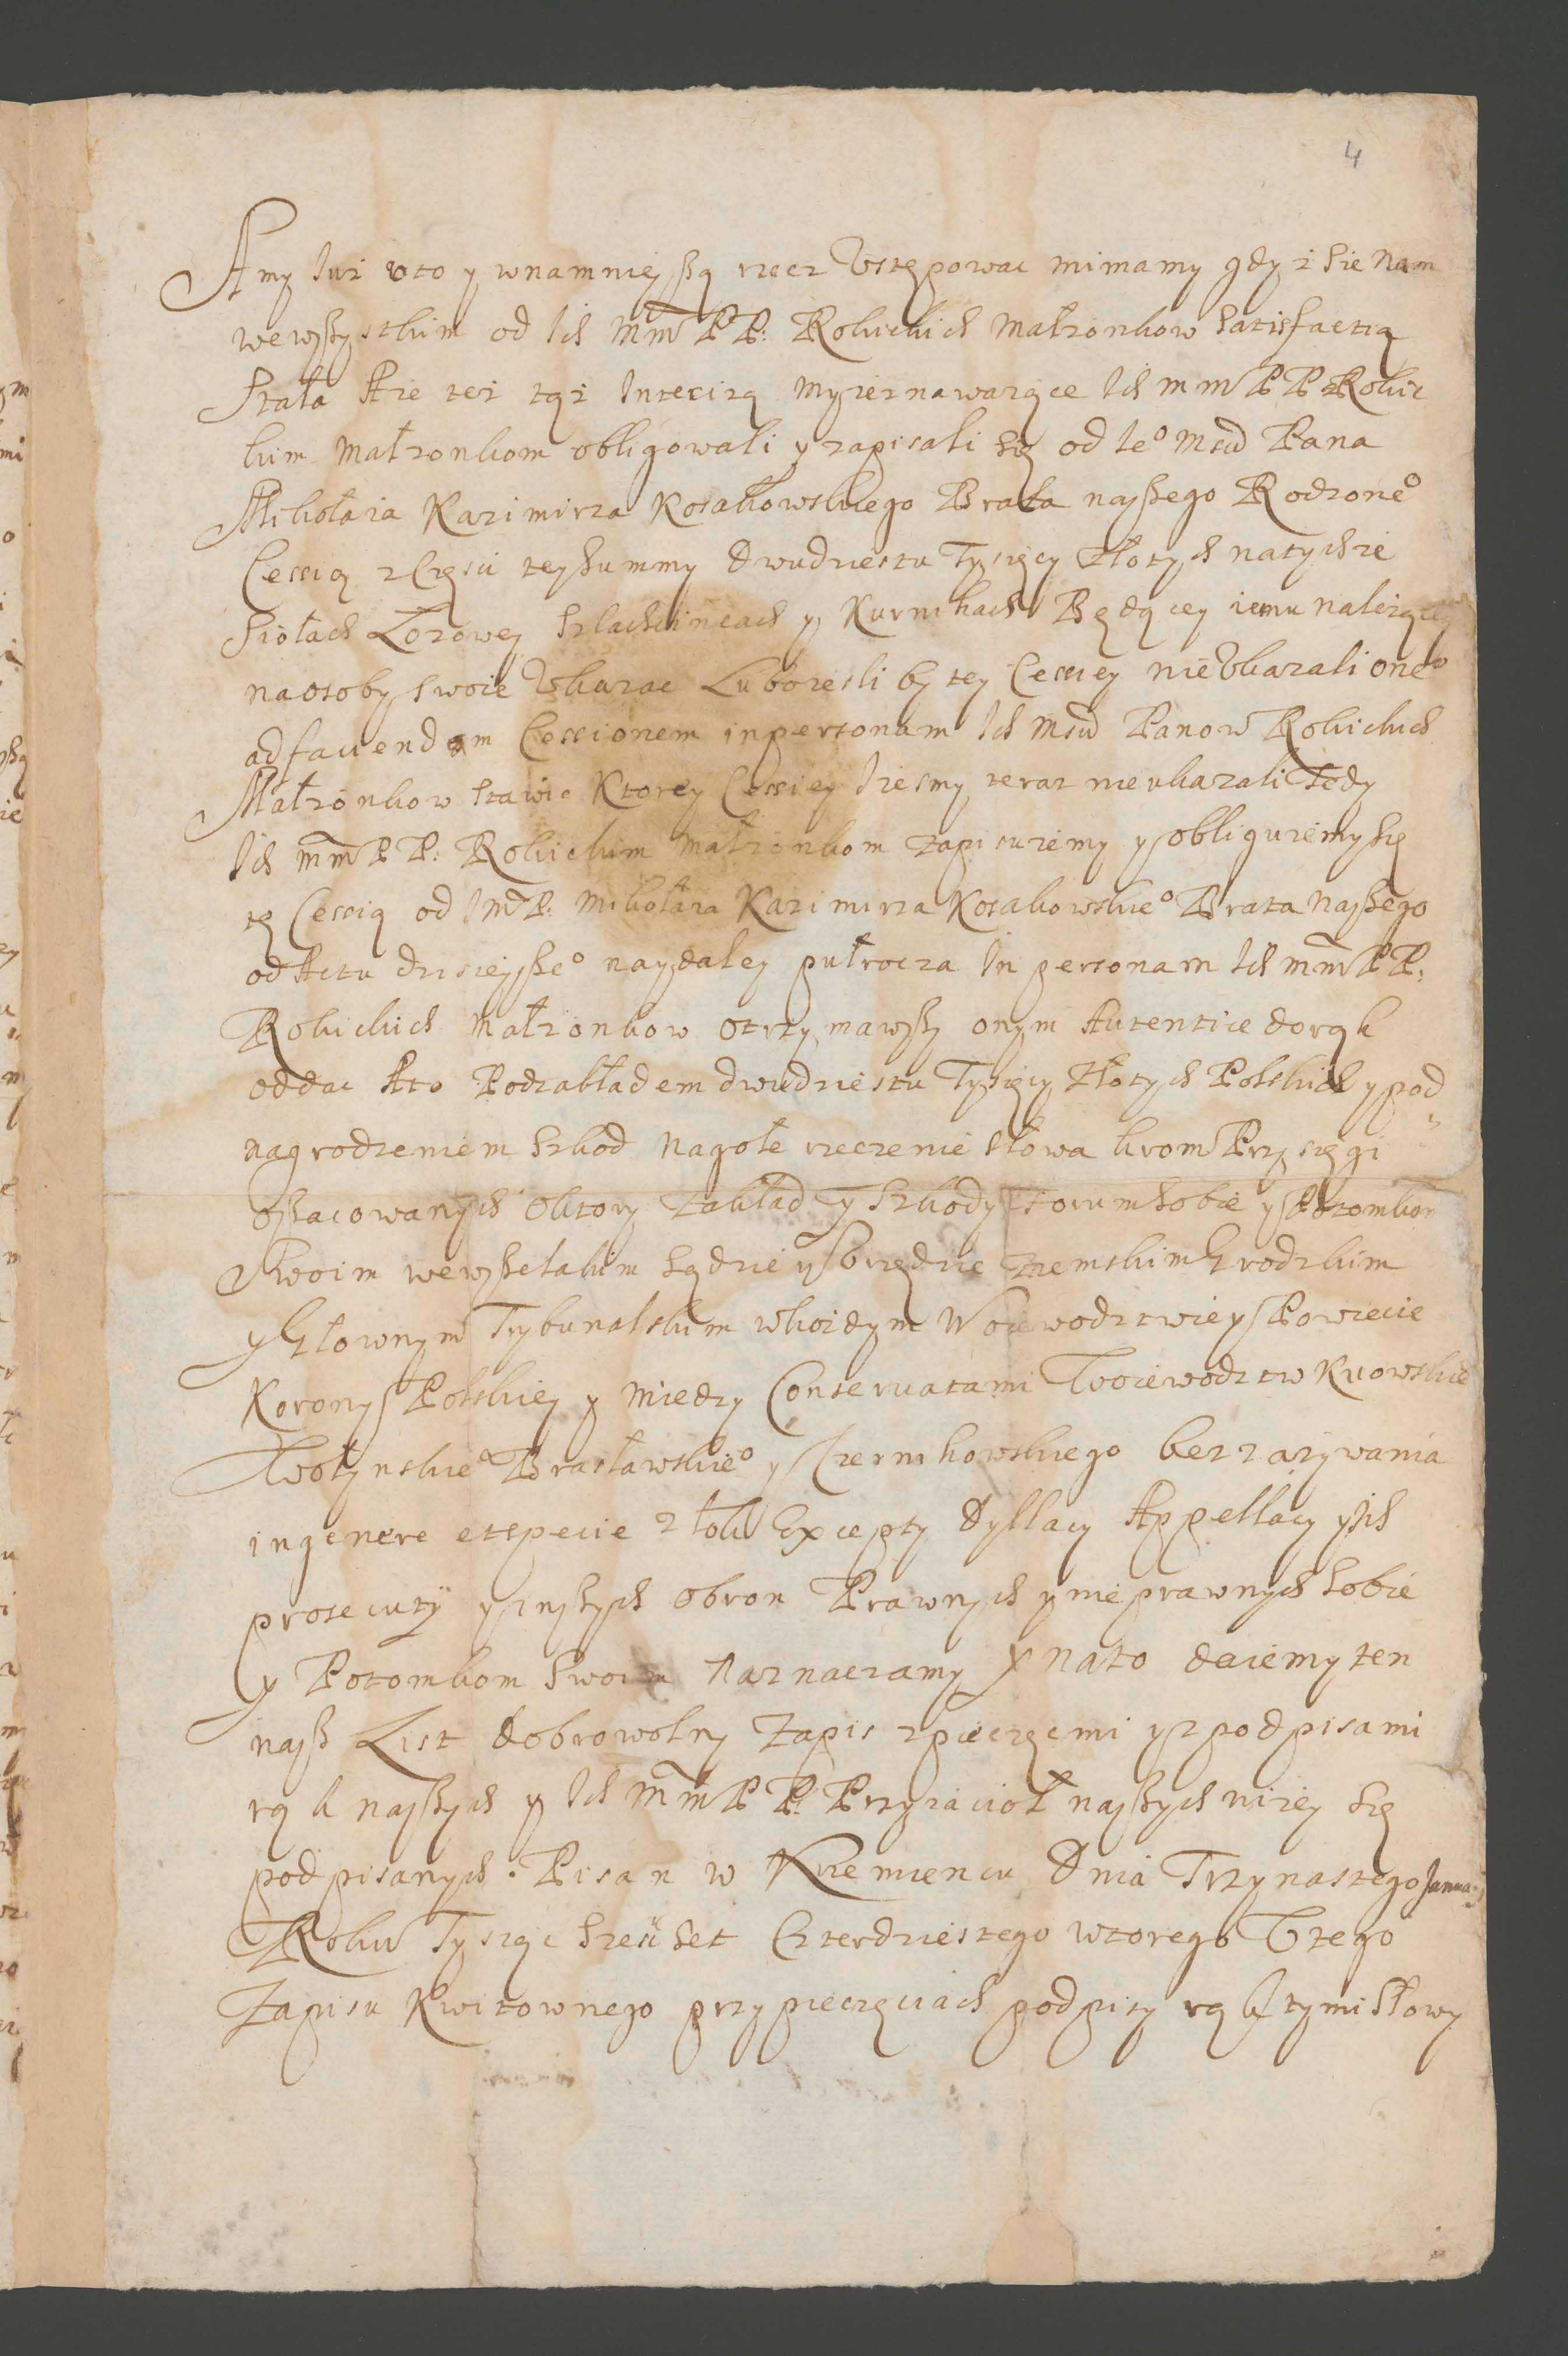 4
A my Iuż wto y wnamnieyszą rzecz Vstępowac mi mamy gdyż sie nam
wewszystkim od Ich Mm̃ PP: Rokickich Małzonkow Satisfactią
Stała Aże też tąż Intercizą myież nawaiące Ich mm PP Rokic
kim Małzonkom obligowali y zapisali się od Ieº Mści Pana
Mikołaia Kazimirza Kosakowskiego Brata naszego Rodzoneº
Cessią z Części tey Summy dwudziestu Tysięcy Złotych natychże
Siołach Lozowey Szlachcińcach y Kurnikach Będącey iemu należącey
na osoby swoie Vkazac Luboiesli by tey Cessiey nie Vkazali oneº
ad faciendam Cessionem in personam Ich Mści Panow Rokickich
Małzonkow Stawic Ktorey Cessiey Iżesmy teraz nieukazali Tedy
Ich Mm̃ PP: Rokickim Małzonkom zapisuiemy y obliguiemy się
tę Cessią od Im̃ P: Mikołaia Kazimirza Kosakowskieº Brata Naszego
od Actu dzisieyszeº naydaley pułrocza In personam Ich mm̃ PP:
Rokickich Małzonkow otrzymawszy onym Autentice do rąk
oddac A to Pod zakładem dwudziestu Tysięcy Złotych Polskich y pod
nagrodzeniem Szkod nagołe rzeczenie słowa krom Przysięgi
oszacowanych O ktory zakład y Szkody Forum sobie y Potomkom
Swoim wewszelakim Sądzie y Vrzędzie Ziemskim Grodzkim
y Głownym Trybunalskim wkożdym Woiewodztwie y Powiecie
Korony Polskiey y Miedzy Conservatami Woiewodztw Kiowskieº
Wołynskieº Brasławskieº y Czernihowskiego bez zażywania
in genere et specie złoki Excepty Dyllacy Appellacy y ich
prosecuty y inszych obron Prawnych y nieprawnych sobie
y Potomkom Swoim naznaczamy Y na to daiemy ten
nasz List dobrowolny Zapis zpieczęcmi y zpodpisami
rąk naszych y Ich Mm̃ PP: Przyiacioł naszych niżey się
podpisanych. Pisan w Krzemiencu Dnia Trzynastego Januarij
Roku Tysiąc Szescset Czterdziestego wtorego V tego
Zapisu Kwitownego przy pieczęciach podpisy rąk tymi słowy